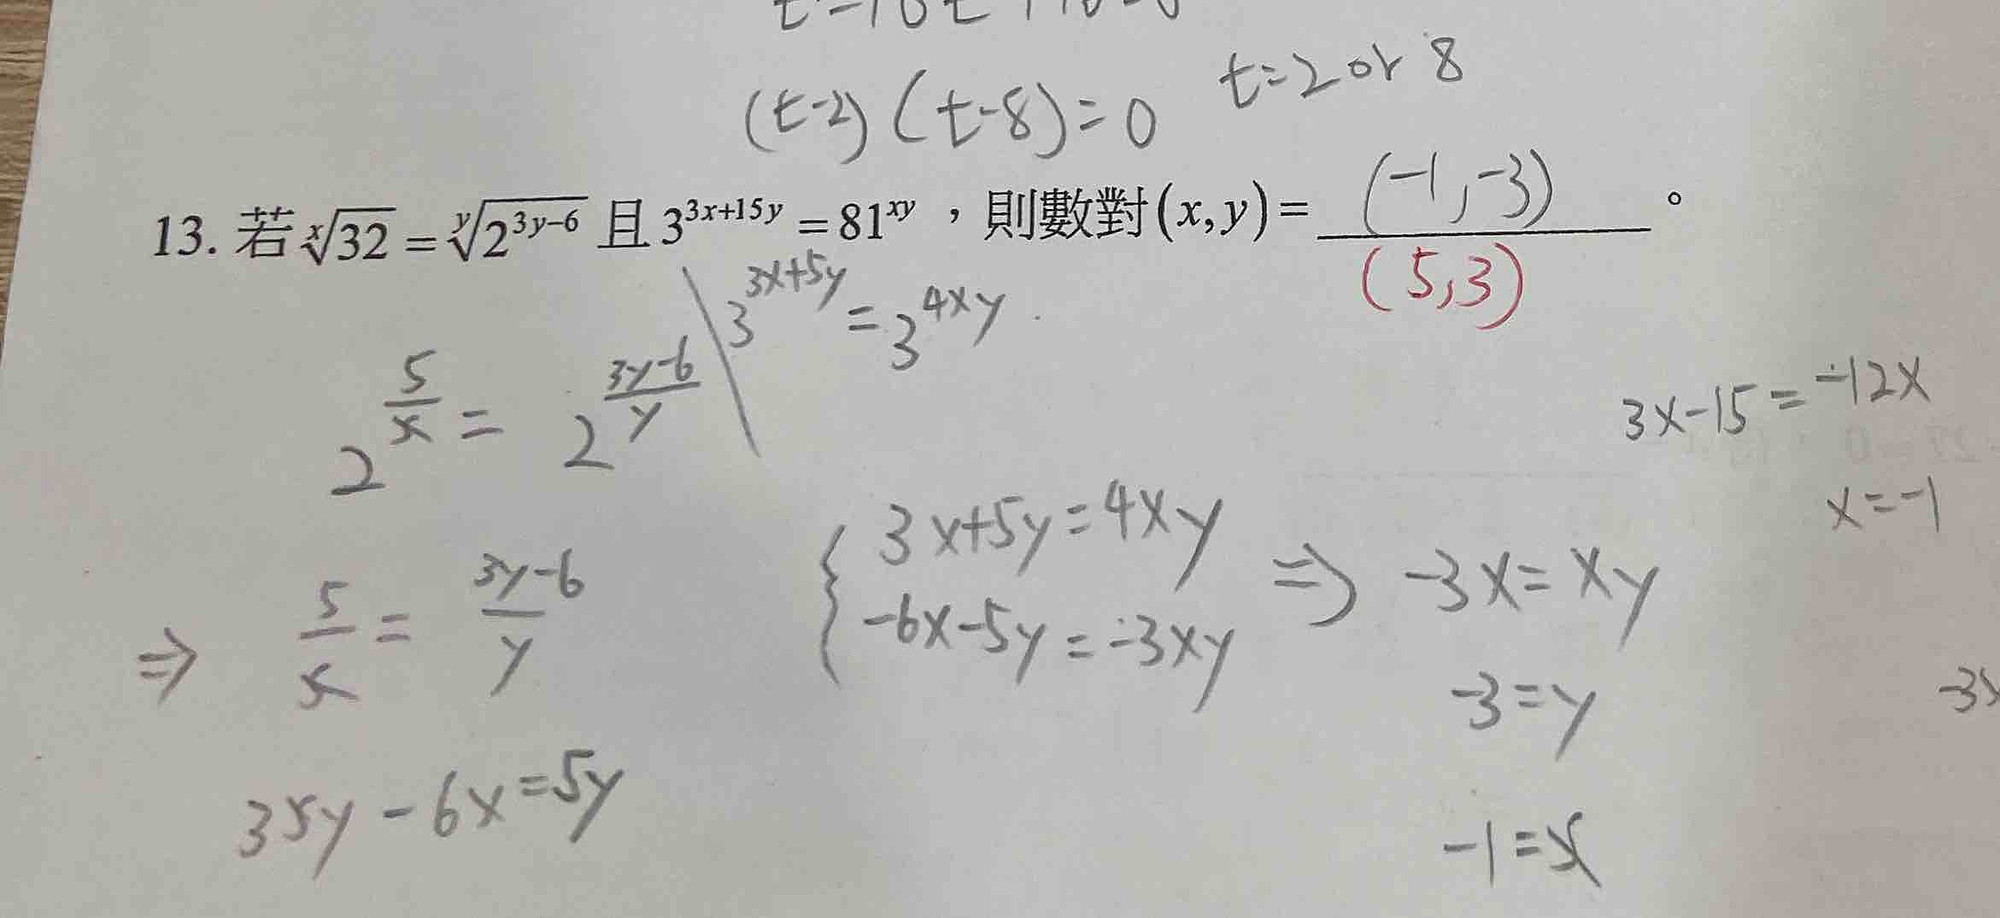 (t-2)(t-8)=0 t=2 or 8
13. 若 ˣ√32 = ʸ√2^(3y-6) 且 3^(3x+15y) = 81^(xy) ,則數對(x,y)= (-1,-3) 。
(5,3)
3^(3x+5y) = 3^(4xy)
2^(5/x) = 2^((3y-6)/y)
3x-15=-12x
x=-1
3x+5y=4xy
-6x-5y=-3xy
⇒ -3x=xy
⇒ 5/x = (3y-6)/y
-3=y
3xy-6x=5y
-1=x